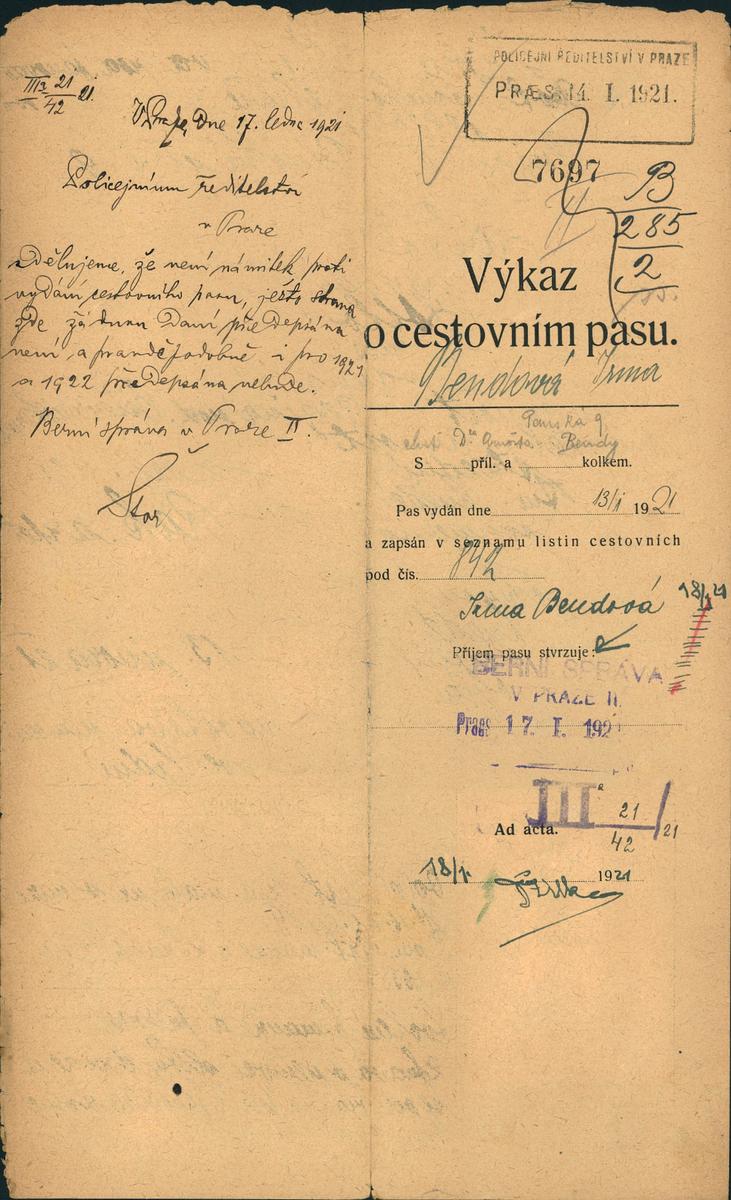 III a 21/42 21
V Praze, dne 17. ledna 1921
Policejnímu ředitelství
v Praze
Sdělujeme, že není námitek proti
vydání cestovního pasu, ješto strana
zde žádnou daní předepsána
není a pravděpodobně i pro 1921
a 1922 předepsána nebude.
Berní správa v Praze II.
POLICEJNÍ ŘEDITELSTVÍ V PRAZE
PRÆS. 14. I. 1921.
7697
B
285
2
Výkaz
o cestovním pasu.
Bendová Irma
Panská 9
S příl. a kolkem.
Pas vydán dne 13/I 1921
a zapsán v seznamu listin cestovních
pod čís. 842
Irma Bendová
18/1 21
Příjem pasu stvrzuje:
BERNÍ SPRÁVA
V PRAZE II.
Praes. 17. I. 192
III a 21/42 /21
Ad acta.
18/1. 1921